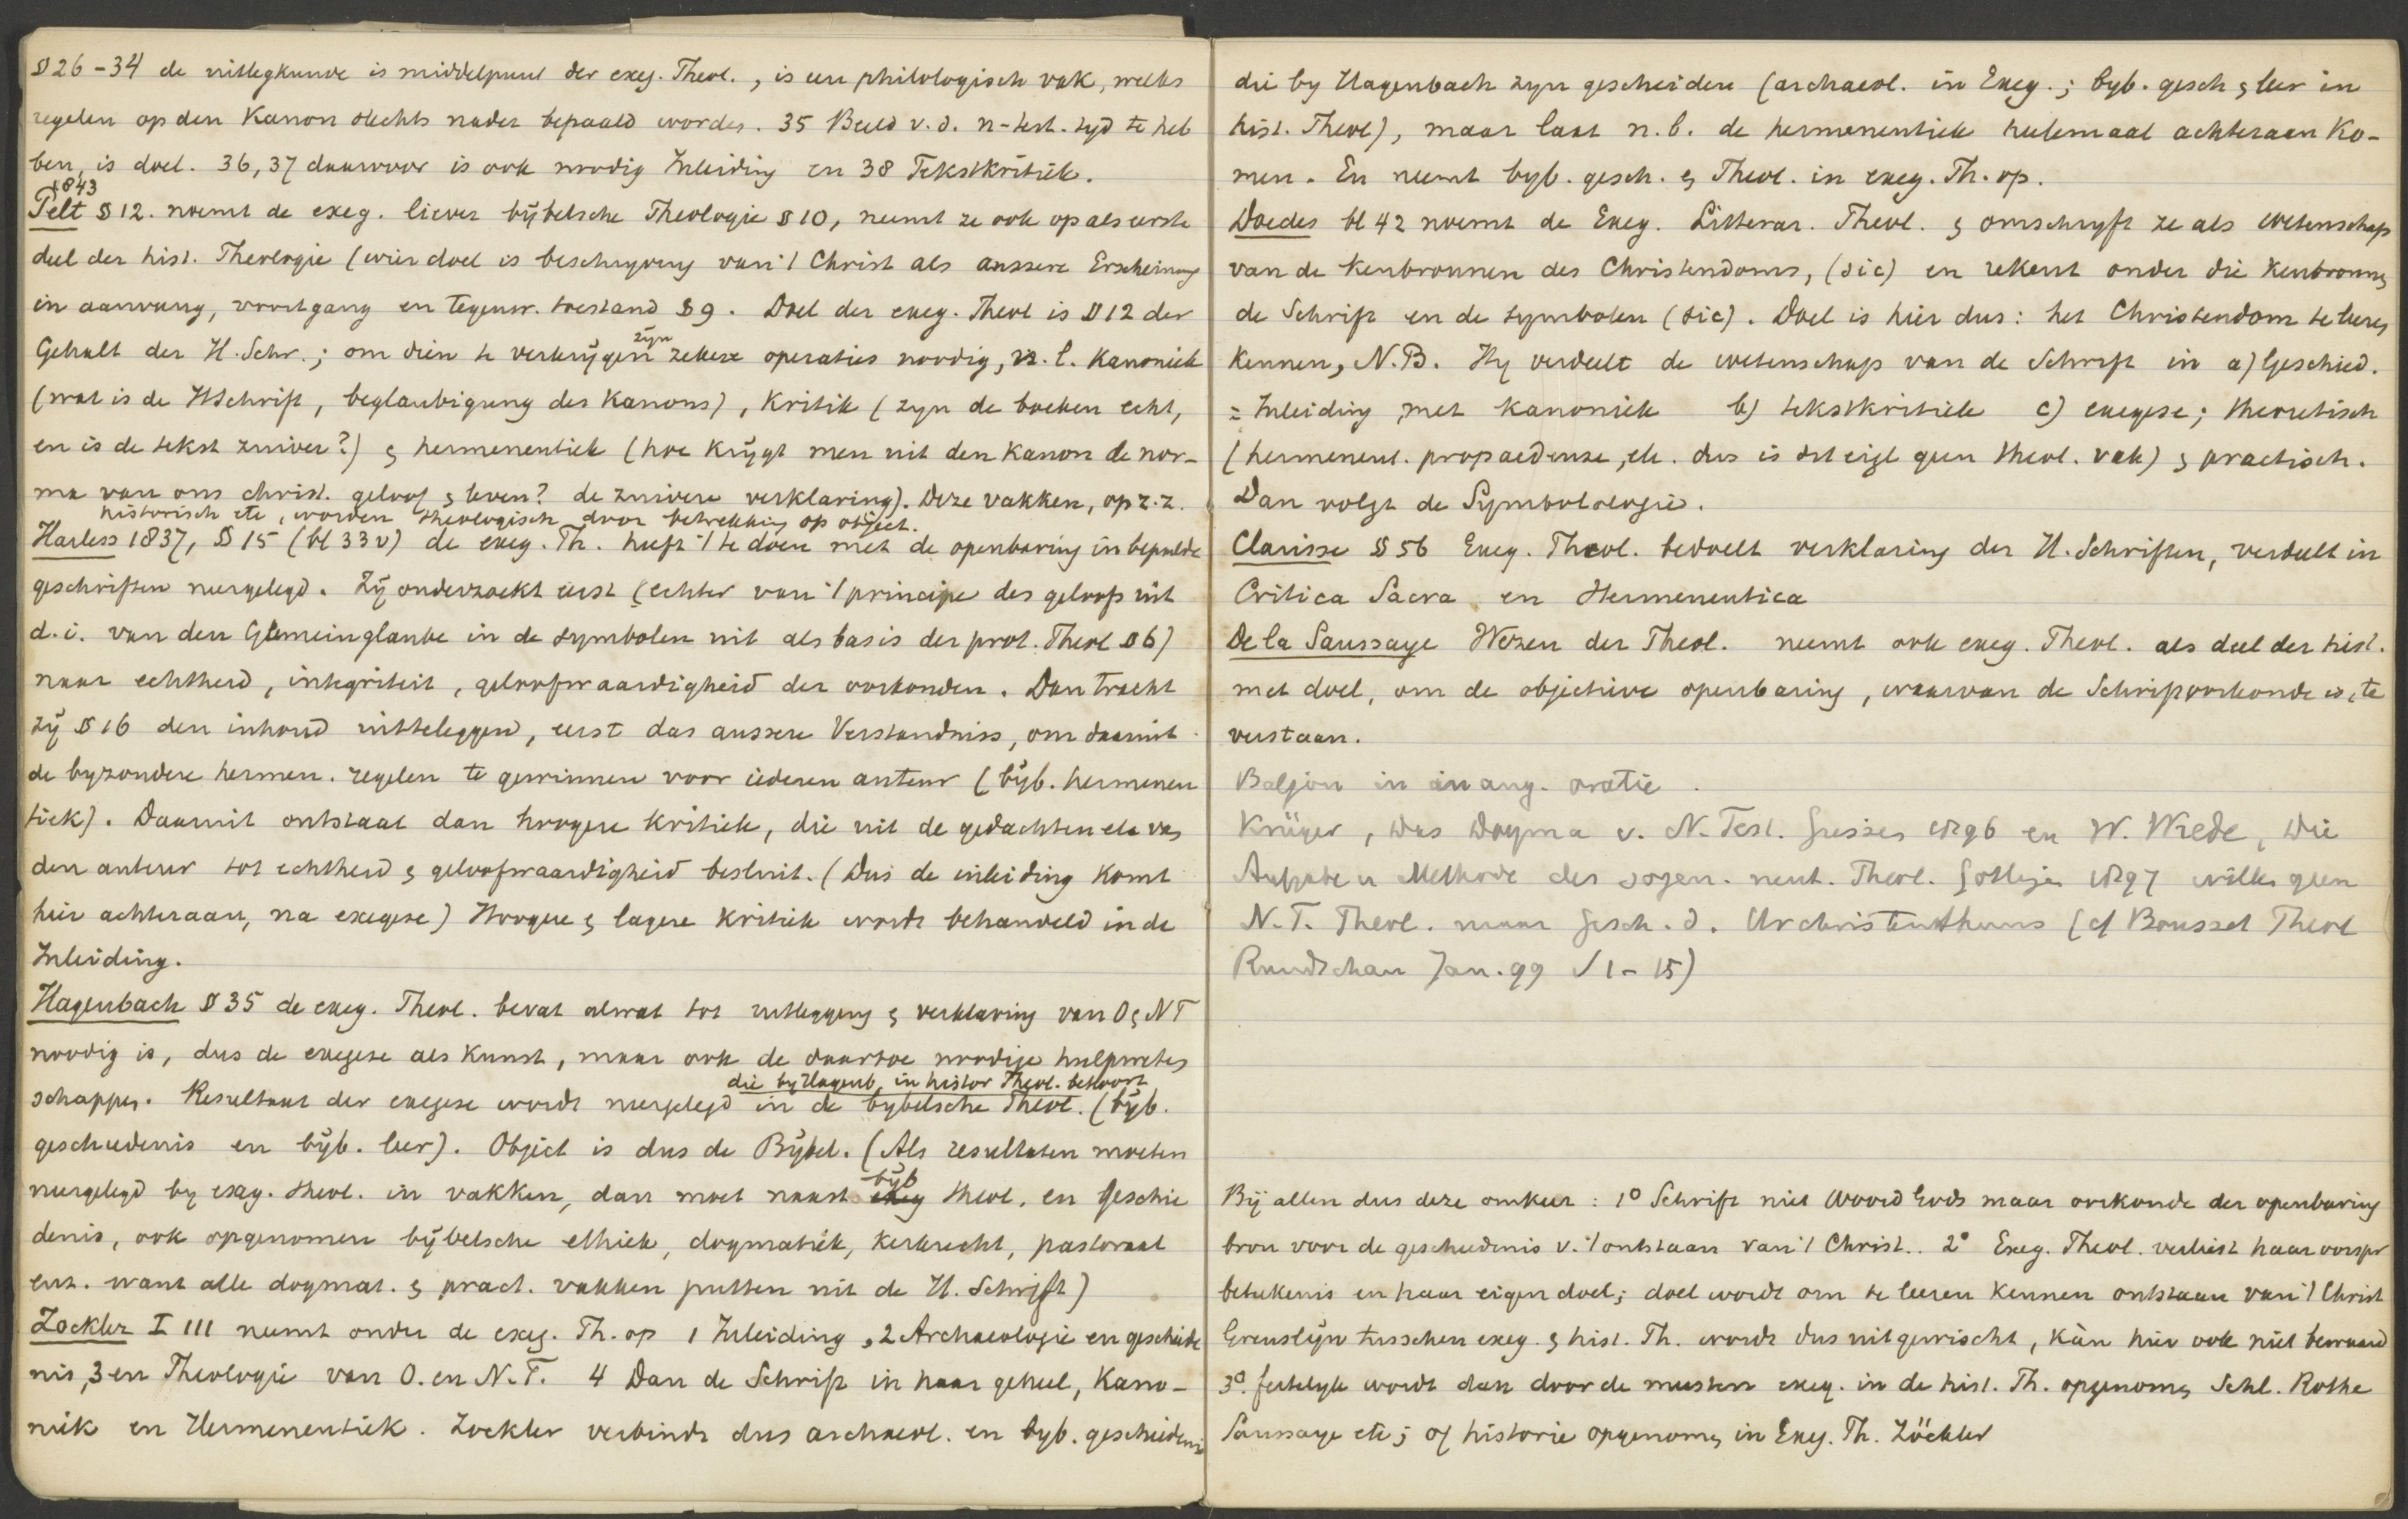 § 26-34 de uitlegkunde is middelpunt der exeg. Theol., is een philologisch vak, welks
regelen op den Kanon slechts nader bepaald worden. 35 Beeld v.d. n-test. tyd te heb
ben, is doel. 36, 37 daarvoor is ook noodig Inleiding en 38 Tekstkritiek.
1843
Pelt § 12. noemt de exeg. liever bijbelsche Theologie § 10, neemt ze ook op als eerste
deel der hist. Theologie (wier doel is beschryving van 't Christ als aussere Erscheinung
in aanvang, voortgang en tegenw. toestand § 9. Doel der exeg. Theol is § 12 der
Gehalt der H. Schr.; om dien te verkrijgen zijn zekere operaties noodig, n. l. Kanoniek
(wat is de HSchrift, beglaubigung des Kanons), Kritiek (zyn de boeken echt,
en is de tekst zuiver?) & hermeneutiek (hoe krijgt men uit den Kanon de nor-
ma van ons christ. geloof & leven? de zuivere verklaring). Deze vakken, op z.z.
historisch etc, worden theologisch door betrekking op object.
Harless 1837, § 15 (bl 33 v) de exeg. Th. heeft 't te doen met de openbaring in bepaalde
geschriften neergelegd. Zij onderzoekt eerst (echter van 't principe des geloofs uit
d.i. van den Gemeinglaube in de symbolen uit als basis der prot. Theol § 6)
naar echtheid, integriteit, geloofwaardigheid der oorkonden. Dan tracht
zij § 16 den inhoud uitteleggen, eerst das aussere Verstandniss, om daaruit
de byzondere hermen. regelen te gewinnen voor iederen auteur (bijb. hermeneu
tiek). Daaruit ontstaat dan hoogere Kritiek, die uit de gedachten etc van
den auteur tot echtheid & geloofwaardigheid besluit. (Dus de inleiding komt
hier achteraan, na exegese) Hoogere & lagere Kritiek wordt behandeld in de
Inleiding.
Hagenbach § 35 de exeg. Theol. bevat alwat tot uitlegging & verklaring van O & NT
noodig is, dus de exegese als Kunst, maar ook de daartoe noodige hulpweten
schappen. Resultaat der exegese wordt neergelegd in de bybelsche Theol. (bijb.
die by Hagenb. in histor Theol. behoort
geschiedenis en bijb. leer). Object is dus de Bijbel. (Als resultaten moeten
neergelegd by exeg. theol. in vakken, dan moet naast exeg bijb theol. en geschie
denis, ook opgenomen bijbelsche ethiek, dogmatiek, kerkrecht, pastoraat
enz. want alle dogmat. & pract. vakken putten uit de H. Schrift)
Zockler I 111 neemt onder de exeg. Th. op 1 Inleiding, 2 Archaeologie en geschiede
nis, 3 en Theologie van O. en N.T. 4 Dan de Schrift in haar geheel, Kano-
niek en Hermeneutiek. Zockler verbindt dus archaeol. en byb. geschiedenis
die by Hagenbach zyn gescheiden (archaeol. in Exeg.; byb. gesch & leer in
hist. Theol), maar laat n.b. de hermeneutiek heelemaal achteraan Ko-
men. En neemt byb. gesch. & Theol. in exeg. Th. op.
Doedes bl 42 noemt de Exeg. Litterar. Theol. & omschryft ze als wetenschap
van de Kenbronnen des Christendoms, (sic) en rekent onder die Kenbronnen
de Schrift en de symbolen (sic). Doel is hier dus: het Christendom te leeren
kennen, N.B. Hy verdeelt de wetenschap van de Schrift in a) Geschied.
= Inleiding met Kanoniek b) tekstkritiek c) exegese; theoretisch
(hermeneut. propaedeuse, etc. dus is dit eigl geen theol. vak) & practisch.
Dan volgt de Symbololgie.
Clarisse § 56 Exeg. Theol. bedoelt verklaring der H. Schriften, verdeelt in
Critica Sacra en Hermeneutica
De la Saussaye Wezen der Theol. neemt ook exeg. Theol. als deel der hist.
met doel, om de objectieve openbaring, waarvan de Schrift oorkonde is, te
verstaan.
Baljon in inaug. oratie.
Krüger, das Dogma v. N. Test. Giessen 1896 en W. Wrede, Die
Aufgabe u Methode der sogen. neut. Theol. Gottingen 1897 willen geen
N.T. Theol. maar Gesch. d. Urchristenthums (cf Bousset Theol
Rundschau Jan. 99 S 1-15)
Bij allen dus deze omkeer: 1° Schrift niet Woord Gods maar oorkonde der openbaring
bron voor de geschiedenis v. 't ontstaan van 't Christ.. 2° Exeg. Theol. verliest haar oorspr
beteekenis en haar eigen doel; doel wordt om te leeren kennen ontstaan van 't Christ
Grenslijn tusschen exeg. & hist. Th. wordt dus uitgewischt, kàn hier ook niet bewaard
3°. feitelyk wordt dan door de meesten exeg. in de hist. Th. opgenomen Schl. Rothe
Saussaye etc; of historie opgenomen in Exeg. Th. Zöckler